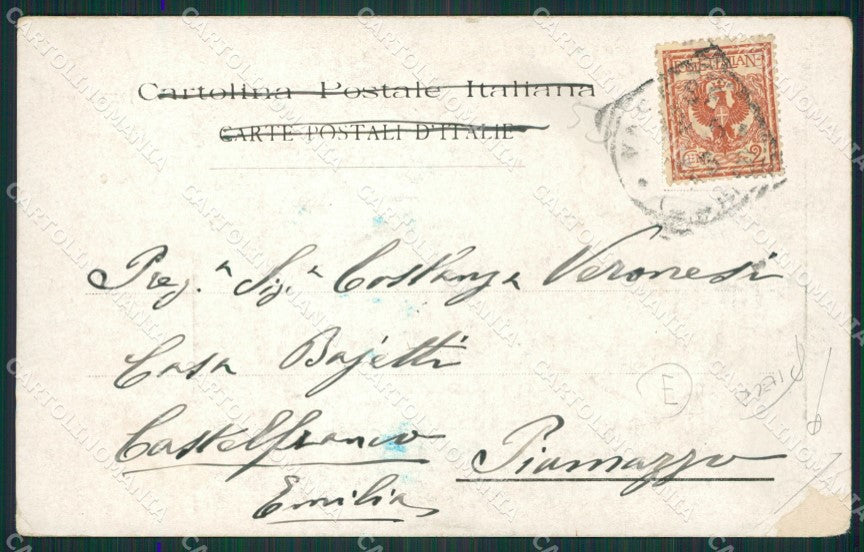 Cartolina Postale Italiana
CARTE POSTALI D'ITALIE
Preg.ª Sig.ª Costanza Veronesi
Casa Bajetti
Castelfranco Piamazzo
Emilia
E
CARTOLINOMANIA